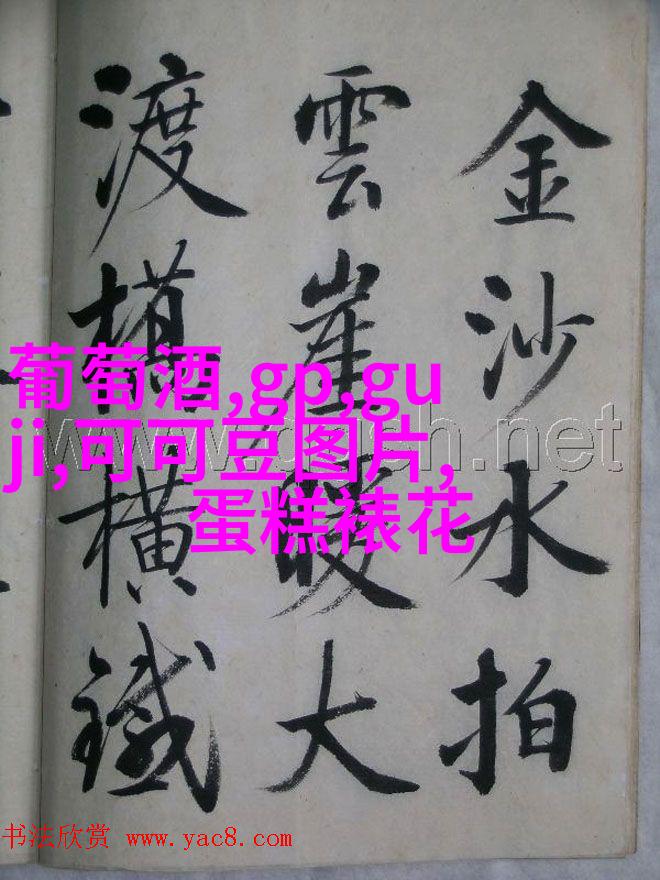 金沙水拍
雲崖暖大
渡橋橫鐵
葡萄酒,gp,gu
ji,可可豆图片,
蛋糕裱花
书法欣赏 www.yac8.com